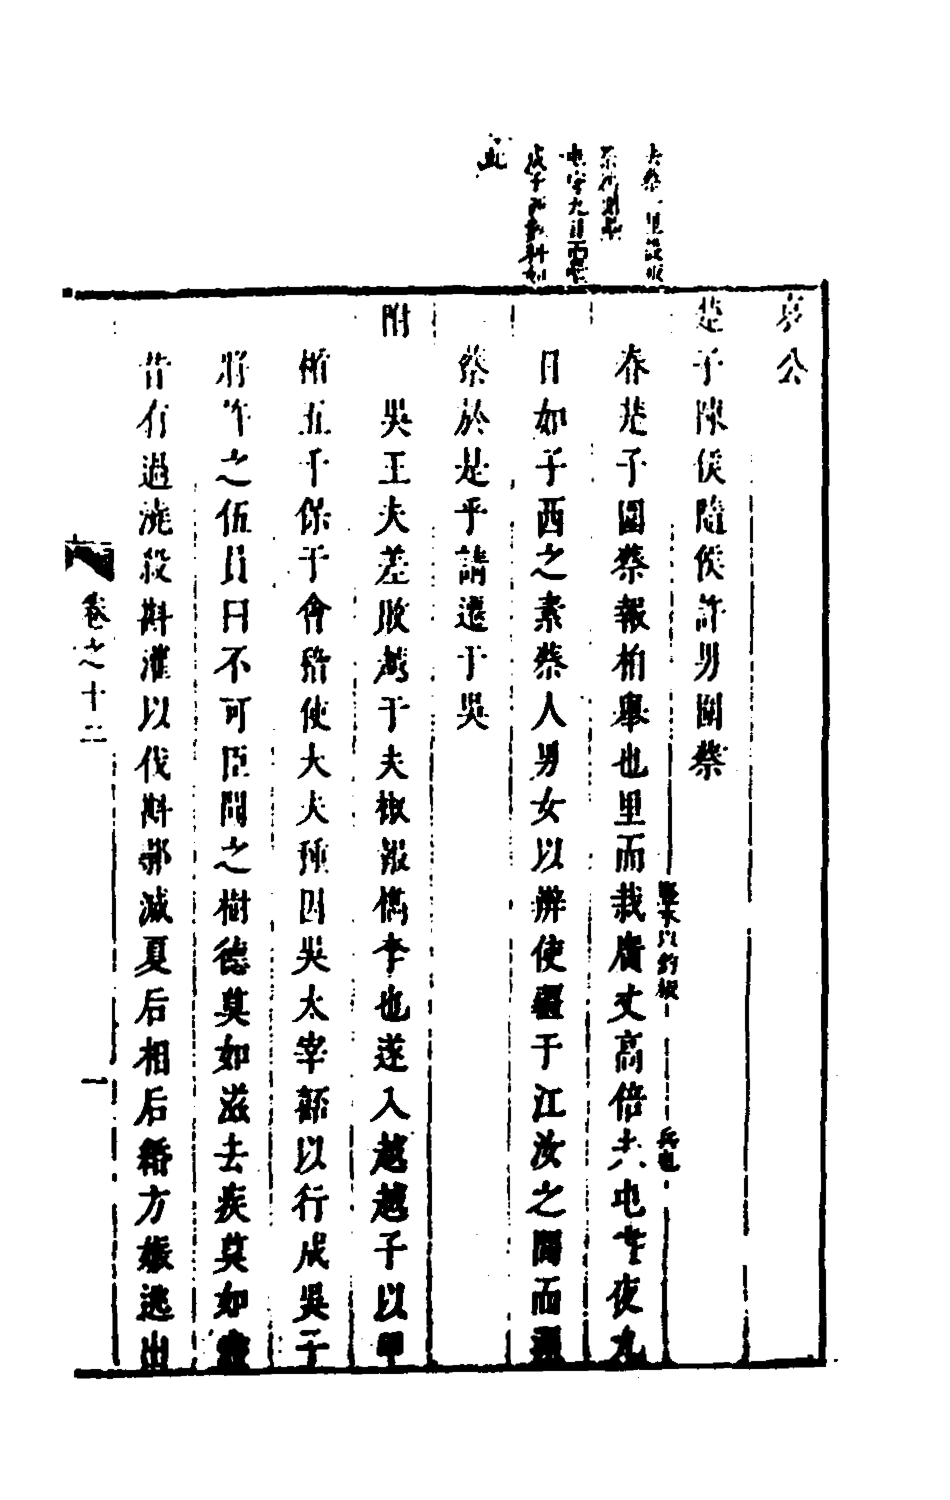 哀公
楚子陳侯隨侯許男圍蔡
春楚子圍蔡報柏舉也里而栽廣丈高倍夫屯晝夜九
日如子西之素蔡人男女以辨使疆于江汝之間而還
蔡於是乎請遷于吳
附 吳王夫差敗越于夫椒報檇李也遂入越越子以甲
楯五千保于會稽使大夫種因吳太宰嚭以行成吳子
將許之伍員曰不可臣聞之樹德莫如滋去疾莫如盡
昔有過澆殺斟灌以伐斟鄩滅夏后相后緡方娠逃出
卷之十二
一